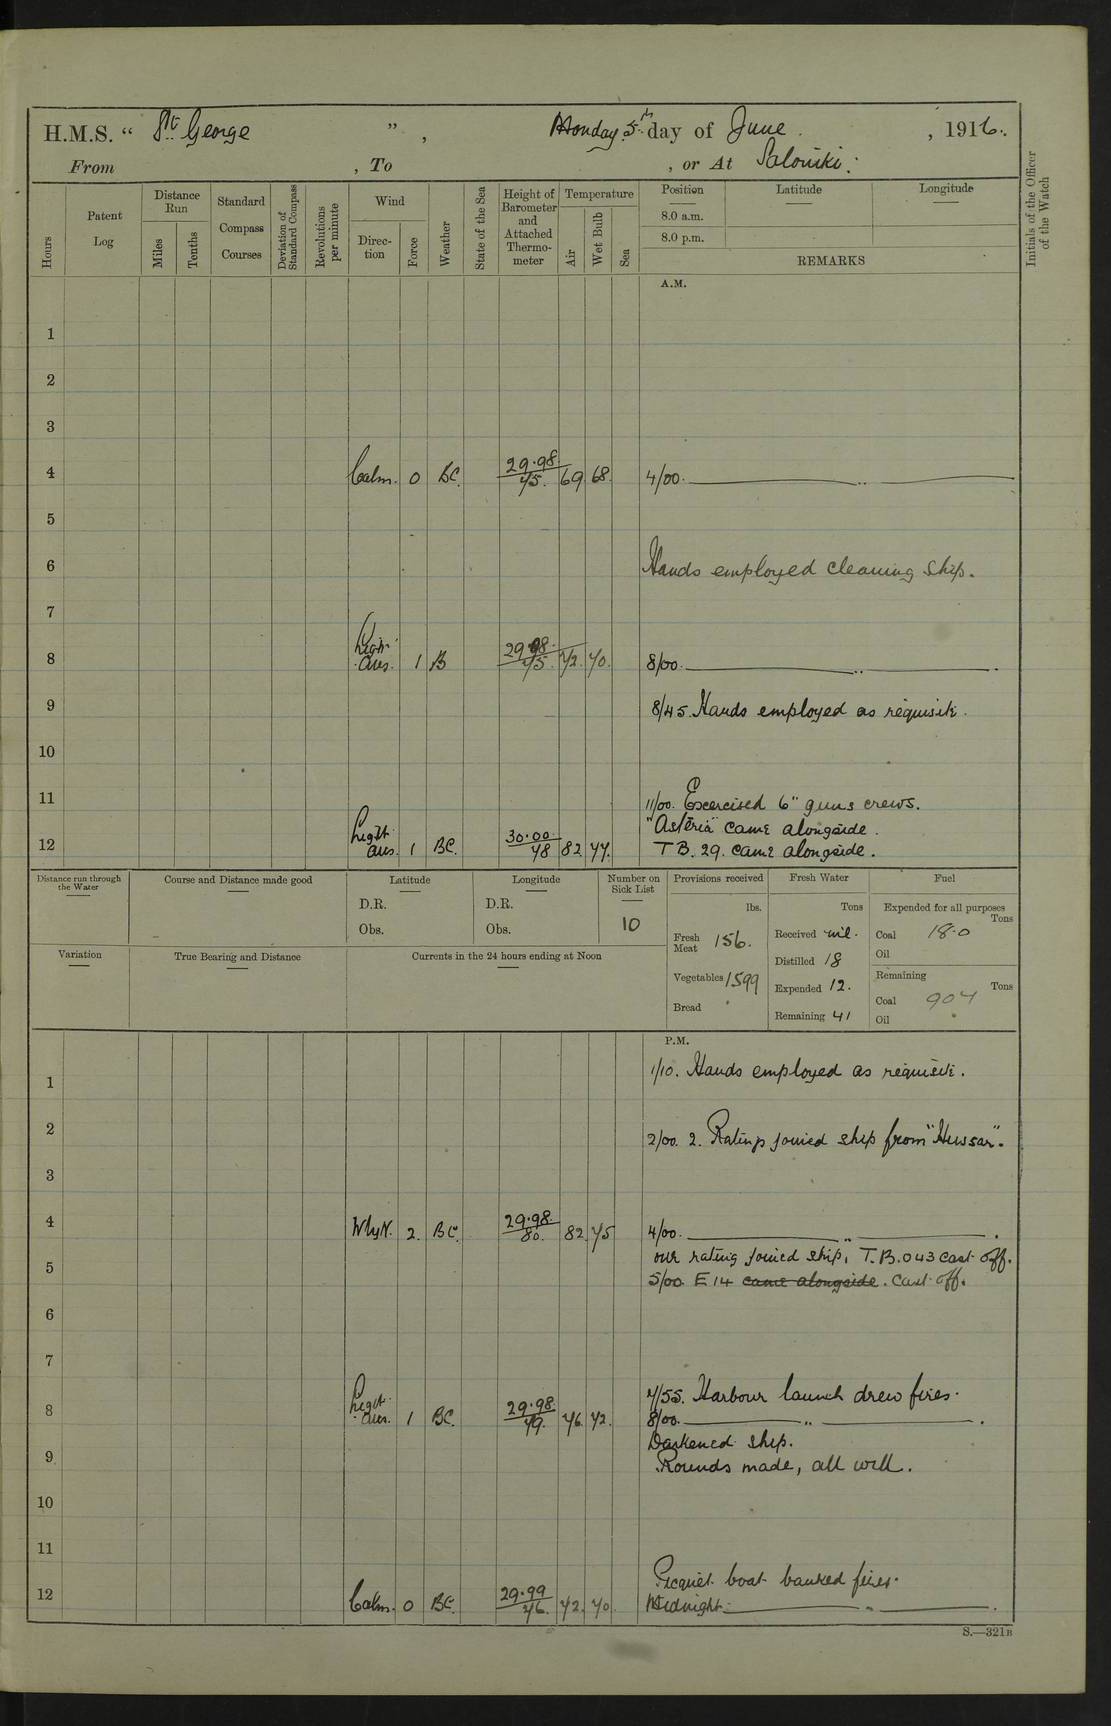 H.M.S. “ St. George ” , Monday 5th day of June , 1916.
From , To , or At Salonika.
Hours
Patent Log
Distance Run
Miles
Tenths
Standard Compass Courses
Deviation of Standard Compass
Revolutions per minute
Wind
Direction
Force
Weather
State of the Sea
Height of Barometer and Attached Thermometer
Temperature
Air
Wet Bulb
Sea
Position
Latitude
Longitude
8.0 a.m.
8.0 p.m.
REMARKS
Initials of the Officer of the Watch
A.M.
1
2
3
4 Calm. 0 BC. 29.98 75. 69 68. 4/00.
5
6 Hands employed cleaning ship.
7
8 Light airs. 1 B 29.98 75. 72. 70. 8/00.
9 8/45. Hands employed as requisite.
10
11 11/00. Excercised 6" guns crews.
"Asteria" came alongside.
12 Light airs. 1 BC. 30.00 78 82 77. T B. 29. came alongside.
Distance run through the Water
Course and Distance made good
Latitude
D.R.
Obs.
Longitude
D.R.
Obs.
Number on Sick List
10
Provisions received
lbs.
Fresh Meat 156.
Vegetables 1599
Bread
Fresh Water
Tons
Received nil.
Distilled 18
Expended 12.
Remaining 41
Fuel
Expended for all purposes
Tons
Coal 18.0
Oil
Remaining
Tons
Coal 907
Oil
Variation
True Bearing and Distance
Currents in the 24 hours ending at Noon
P.M.
1 1/10. Hands employed as requisite.
2 2/00. 2. Ratings joined ship from "Hussar".
3
4 WlyN. 2. BC. 29.98. 80. 82. 75 4/00.
our rating joined ship, T.B. 043 cast off.
5 5/00 E 14 came alongside. Cast off.
6
7
7/55. Harbour launch drew fires.
8 Light airs. 1 BC. 29.98. 79. 76. 72. 8/00.
Darkened ship.
9 Rounds made, all well.
10
11
Picquet boat banked fires.
12 Calm. 0 BC. 29.99 76. 72. 70. Midnight
S.—321B